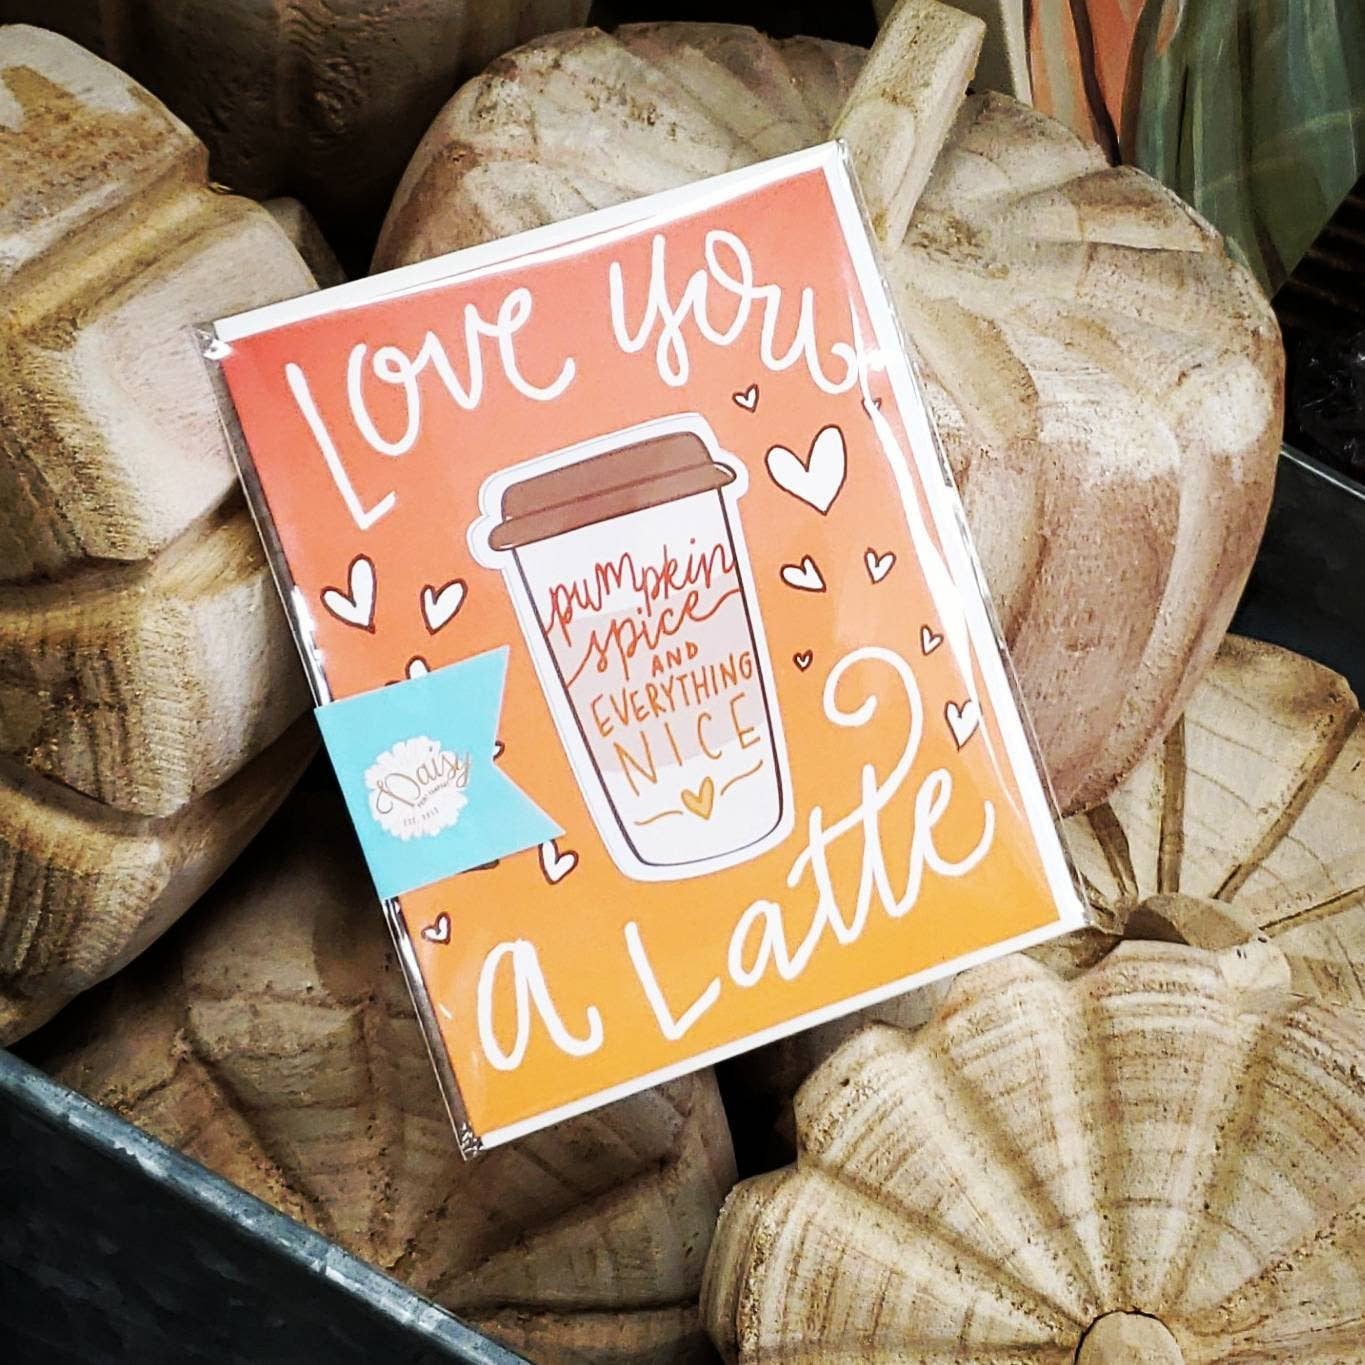 Love you
pumpkin
spice
AND
EVERYTHING
NICE
Daisy
EST. 2013
a Latte